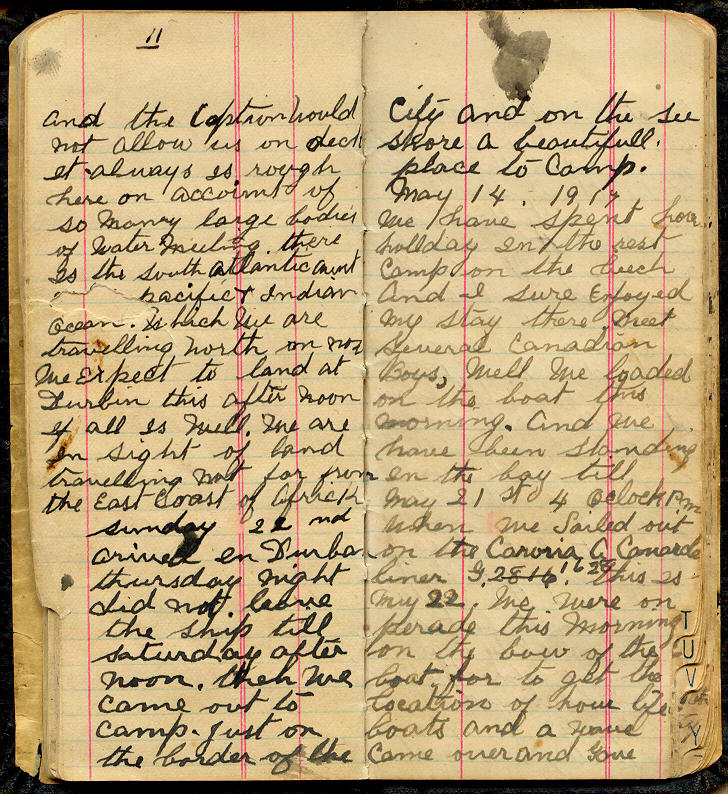 11
and the Caption would
not allow us on deck
it always is rough
here on account of
so manny large bodies
of water meeting. there
is the south atlantic
pacific & Indian
ocean. which we are
travelling north on now
we expect to land at
Durbin this after noon
if all is well. we are
in sight of land
travelling not far from
the East Coast of
sunday 22 nd
arived en Durban
thursday night
did not leave
the ship till
saturday after
noon. then we
came out to
camp. just on
the border of the
City and on the see
shore a beautifull.
place to Camp.
May 14. 1917
we have spent hour
holliday in the rest
Camp on the beech
And I sure Enjoyed
my stay there. Meet
several Canadian
Boys, Well We loaded
on the boat this
morning. And we
have been standing
en the bay till
May 21 st 4 oclock Pm
when we Sailed out
on the Caronia A Canarde
liner This is
May 22. We were on
perade this morning
on the bow of the
boat for to get the
location of hour life
boats and a wave
came over and gave
T
U
V
Y